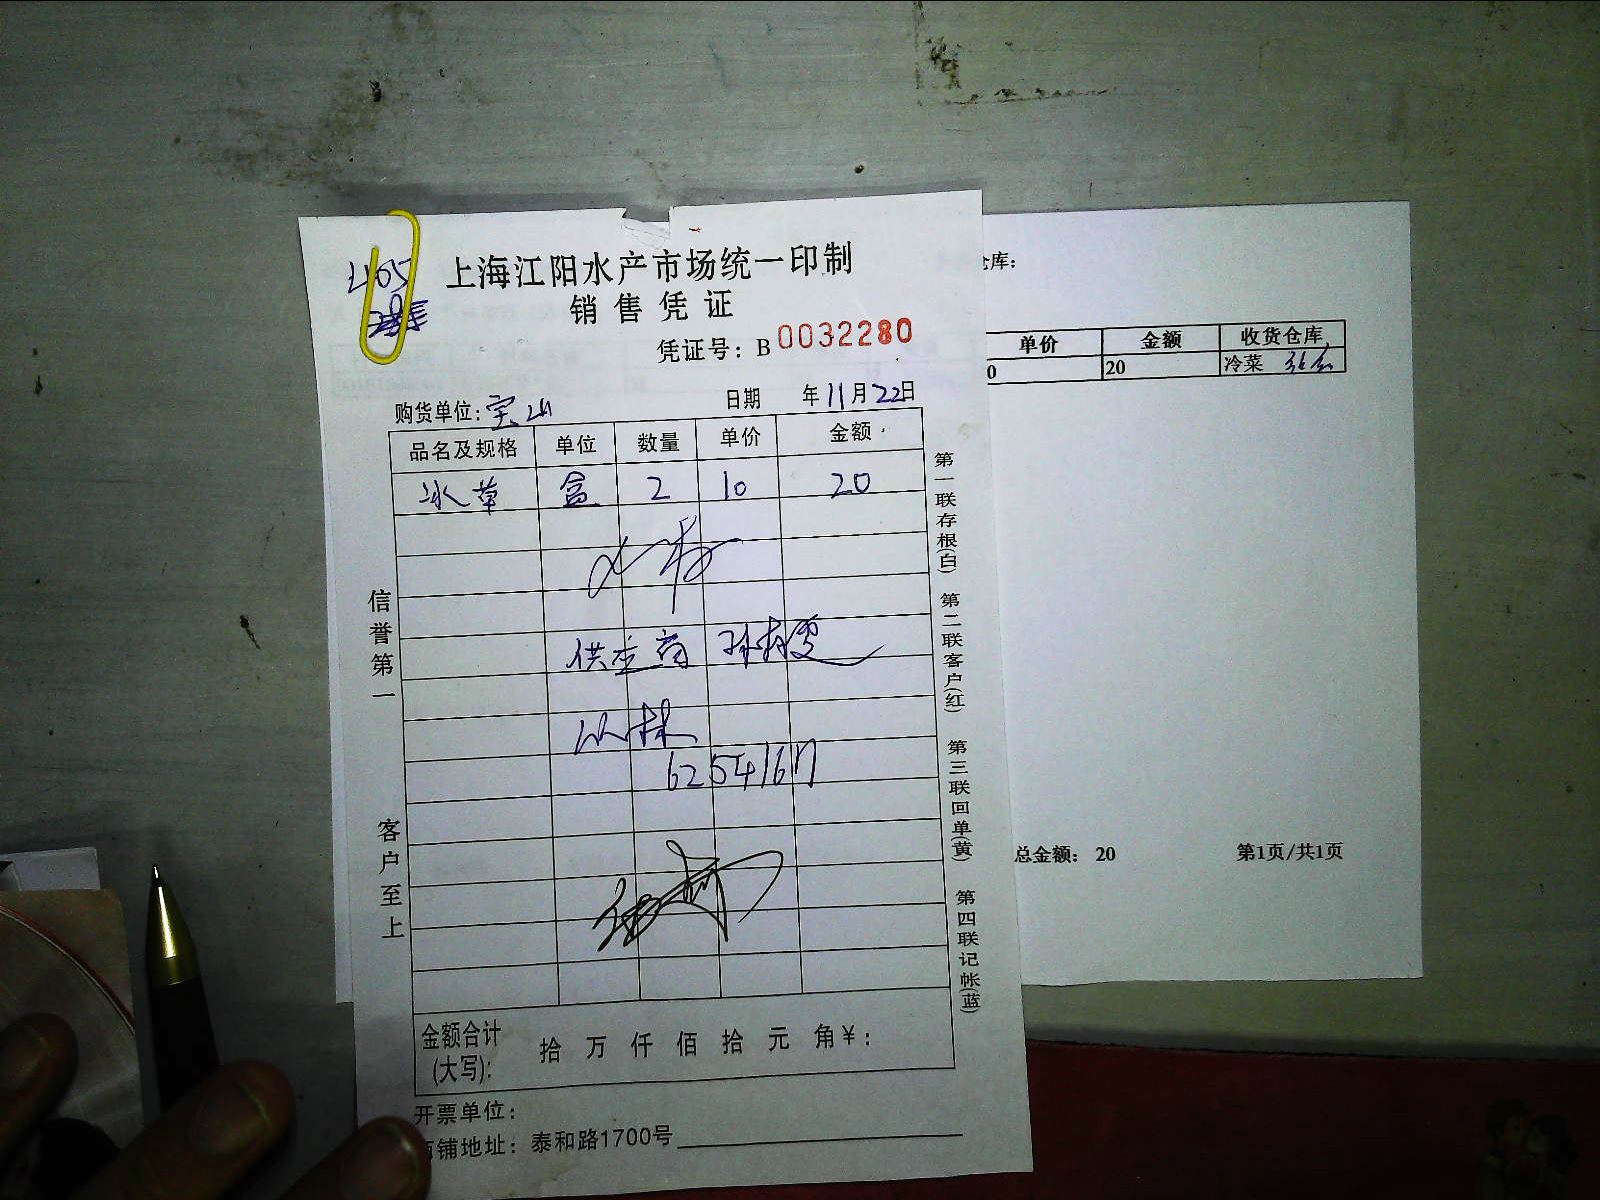 上海江阳水产市场统一印制
销售凭证
凭证号：B 0032280
购货单位：宝山 日期 年11月22日
品名及规格 单位 数量 单价 金额
冰草 盒 2 10 20
供应商
62541617
金额合计(大写)： 拾 万 仟 佰 拾 元 角 ¥：
开票单位：
铺地址：泰和路1700号
信誉第一
客户至上
第一联存根(白) 第二联客户(红) 第三联回单(黄) 第四联记帐(蓝)
库：
单价 金额 收货仓库
0 20 冷菜
总金额： 20 第1页/共1页